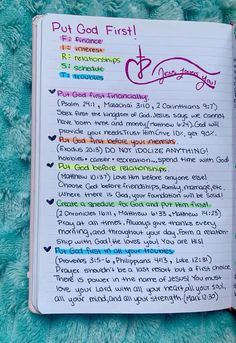 Put God First!
F= Finance
I= interest
R= relationships
S= schedule
T= troubles
Jesus loves you!
Put God first financially
(Psalm 24:1, Malachi 3:10, 2 Corinthians 9:7)
first the kingdom of God. Jesus says we cannot
have both time and money (Matthew 6:24). God will
provide your needs. Trust Him. Give 10%, get 90%.
Put God first before your interests
(Exodus 20:3) DO NOT IDOLIZE ANYTHING!
hobbies • career • recreation... spend time with God
Put God before relationships
(Matthew 10:37) Love Him before anyone else!
Choose God before friendships, family, marriage, etc.
Where there is God, your foundation will be solid!
Create a schedule for God and Put Him first.
(1 Chronicles 16:11, Matthew 6:33, Matthew 11:28)
Pray at all times. Always give thanks every
morning, and throughout your day form a relation-
ship with God! He loves you! You are His!
Put God first in all your troubles
(Proverbs 3:5-6, Philippians 4:13, Luke 12:31)
Prayer shouldn't be a last resort but a first choice
There is power in the name of Jesus! You must
love your Lord with all your heart, all your soul,
all your mind, and all your strength. (Mark 12:30)